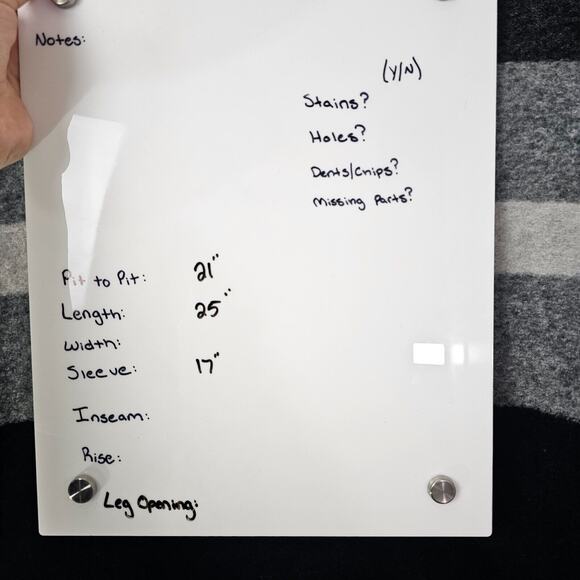 Notes:
(Y/N)
Stains?
Holes?
Dents/Chips?
Missing Parts?
Pit to Pit: 21"
Length: 25"
Width:
Sleeve: 17"
Inseam:
Rise:
Leg Opening: